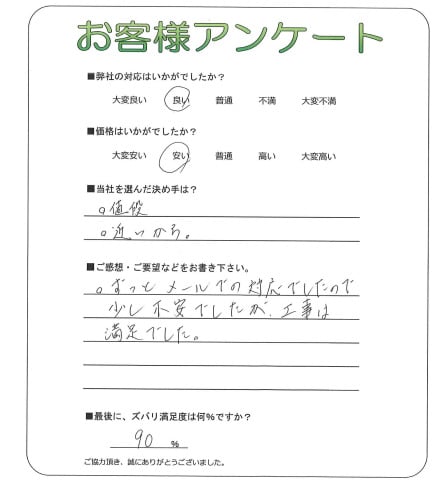 お客様アンケート
■弊社の対応はいかがでしたか？
大変良い 良い 普通 不満 大変不満
■価格はいかがでしたか？
大変安い 安い 普通 高い 大変高い
■当社を選んだ決め手は？
o値段
o近いから。
■ご感想・ご要望などをお書き下さい。
oずっとメールでの対応でしたので
少し不安でしたが、工事は
満足でした。
■最後に、ズバリ満足度は何％ですか？
90 ％
ご協力頂き、誠にありがとうございました。